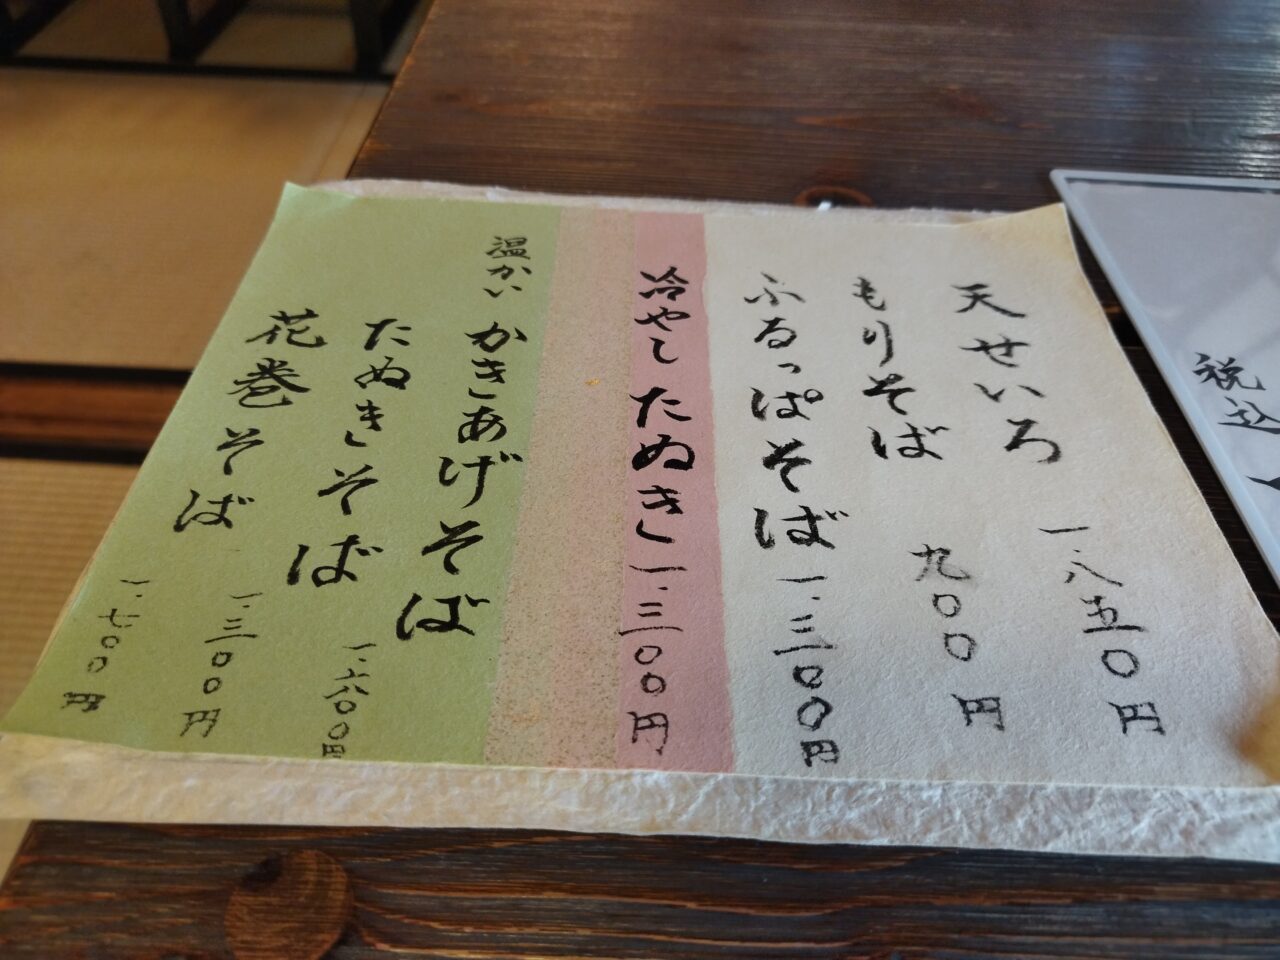 天せいろ 一、八五〇円
もりそば 九〇〇円
ふるっぱそば 一、三〇〇円
冷やし たぬき 一、三〇〇円
温かい かきあげそば 一、六〇〇円
たぬきそば 一、三〇〇円
花巻そば 一、七〇〇円
税込